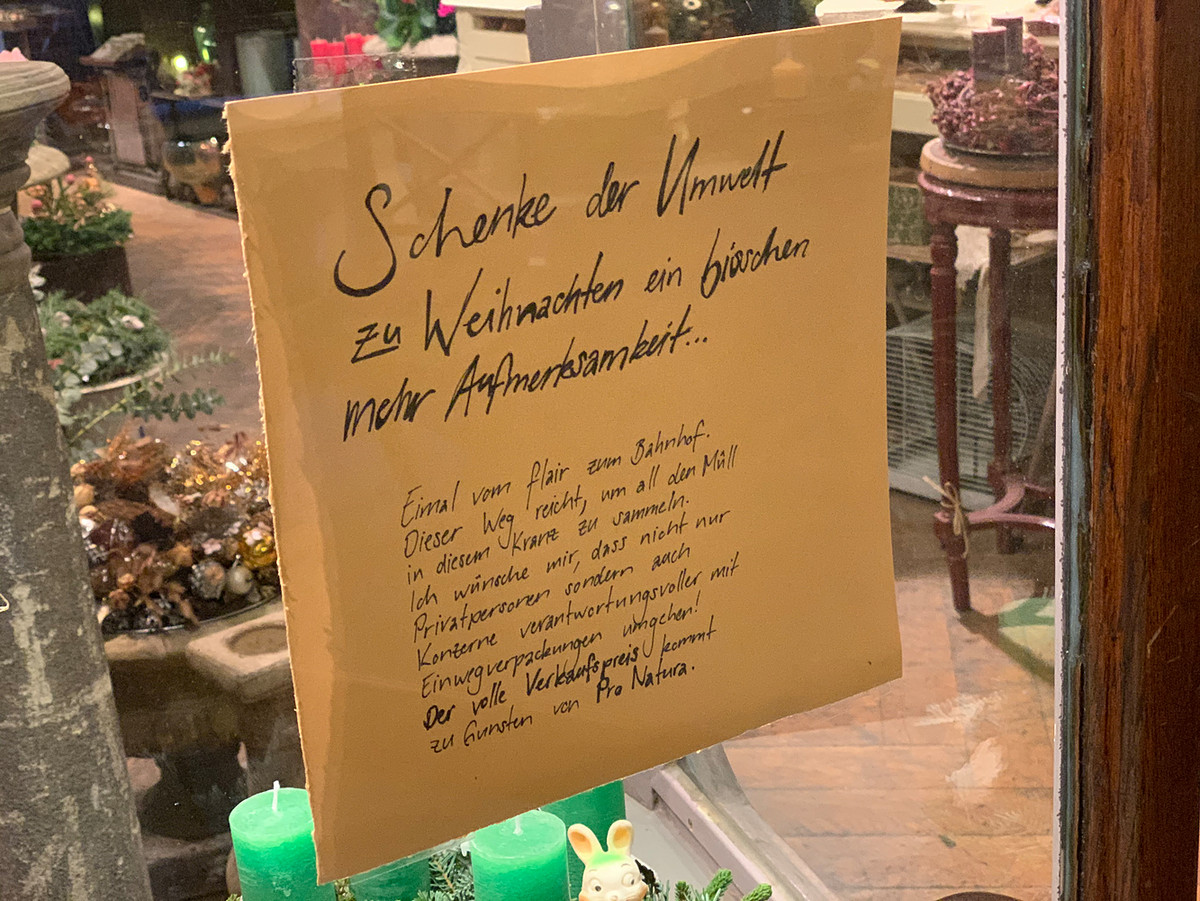 Schenke der Umwelt
zu Weihnachten ein bisschen
mehr Aufmerksamkeit...
Eimal vom flair zum Bahnhof.
Dieser Weg reicht, um all den Müll
in diesem Kranz zu sammeln.
Ich wünsche mir, dass nicht nur
Privatpersonen sondern auch
Konzerne verantwortungsvoller mit
Einwegverpackungen umgehen!
Der volle Verkaufspreis kommt
zu Gunsten von Pro Natura.